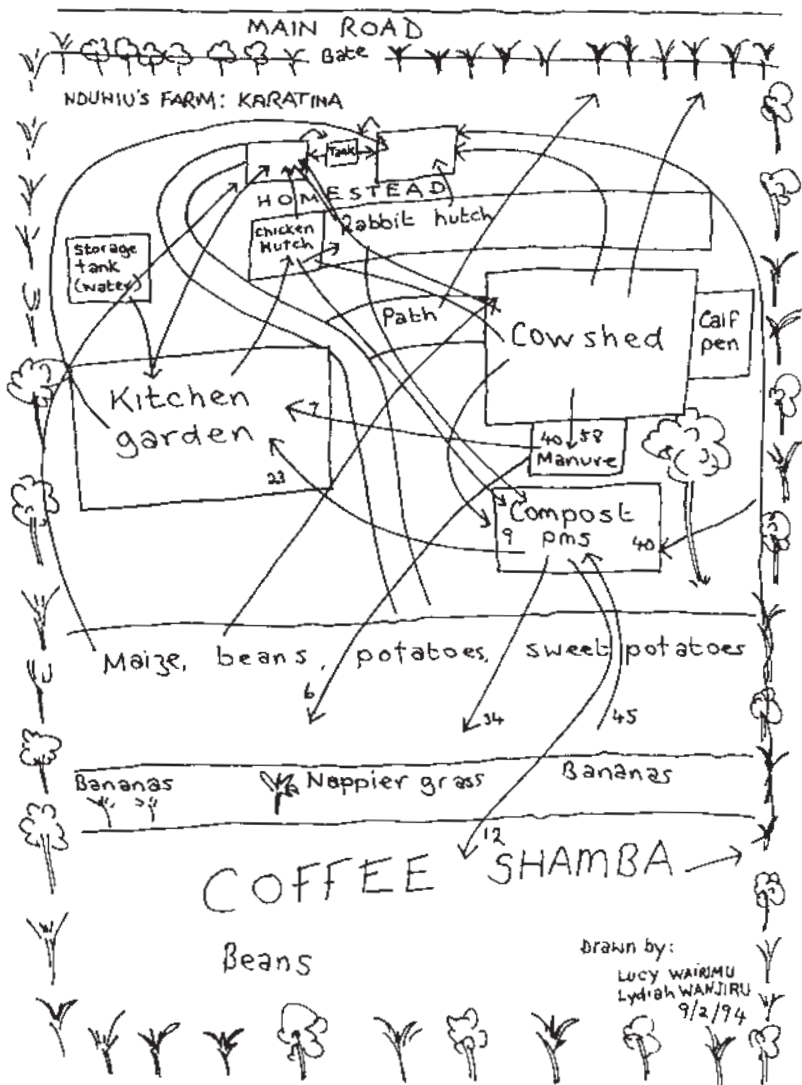 MAIN ROAD
Gate
NDUHIU'S FARM: KARATINA
Tank
HOMESTEAD
Chicken
Hutch
Rabbit hutch
Storage
tank
(water)
Path
Cowshed
Calf
pen
Kitchen
garden
7
23
40 58
Manure
Compost
9 pms 40
Maize, beans, potatoes, sweet potatoes
6
34
45
Bananas
Nappier grass
Bananas
12
COFFEE SHAMBA
Beans
Drawn by:
Lucy WAIRIMU
Lydiah WANJIRU
9/2/94